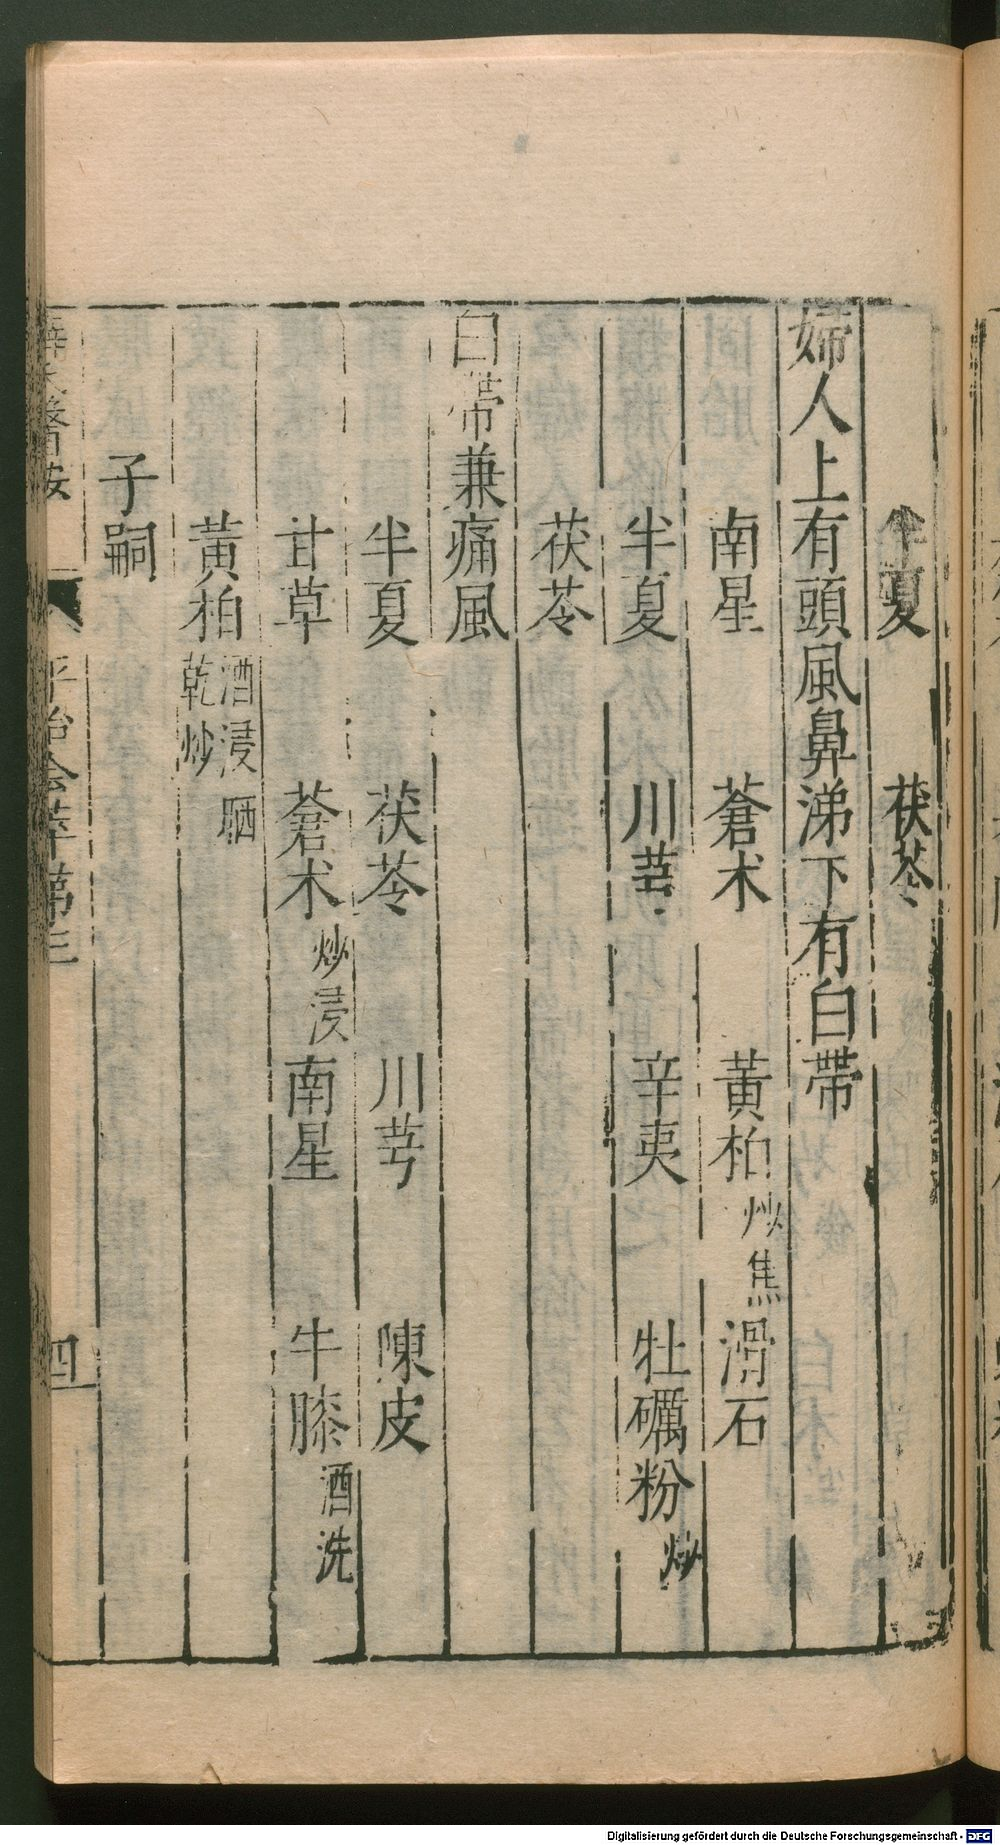 半夏 茯苓
婦人上有頭風鼻涕下有白帶
南星 蒼术 黃柏炒焦 滑石
半夏 川芎 辛夷 牡礪粉炒
茯苓
白帶兼痛風
半夏 茯苓 川芎 陳皮
甘草 蒼术炒浸 南星 牛膝酒洗
黃柏酒浸晒乾炒
子嗣
平治会萃第三 四
Digitalisierung gefördert durch die Deutsche Forschungsgemeinschaft - DFG